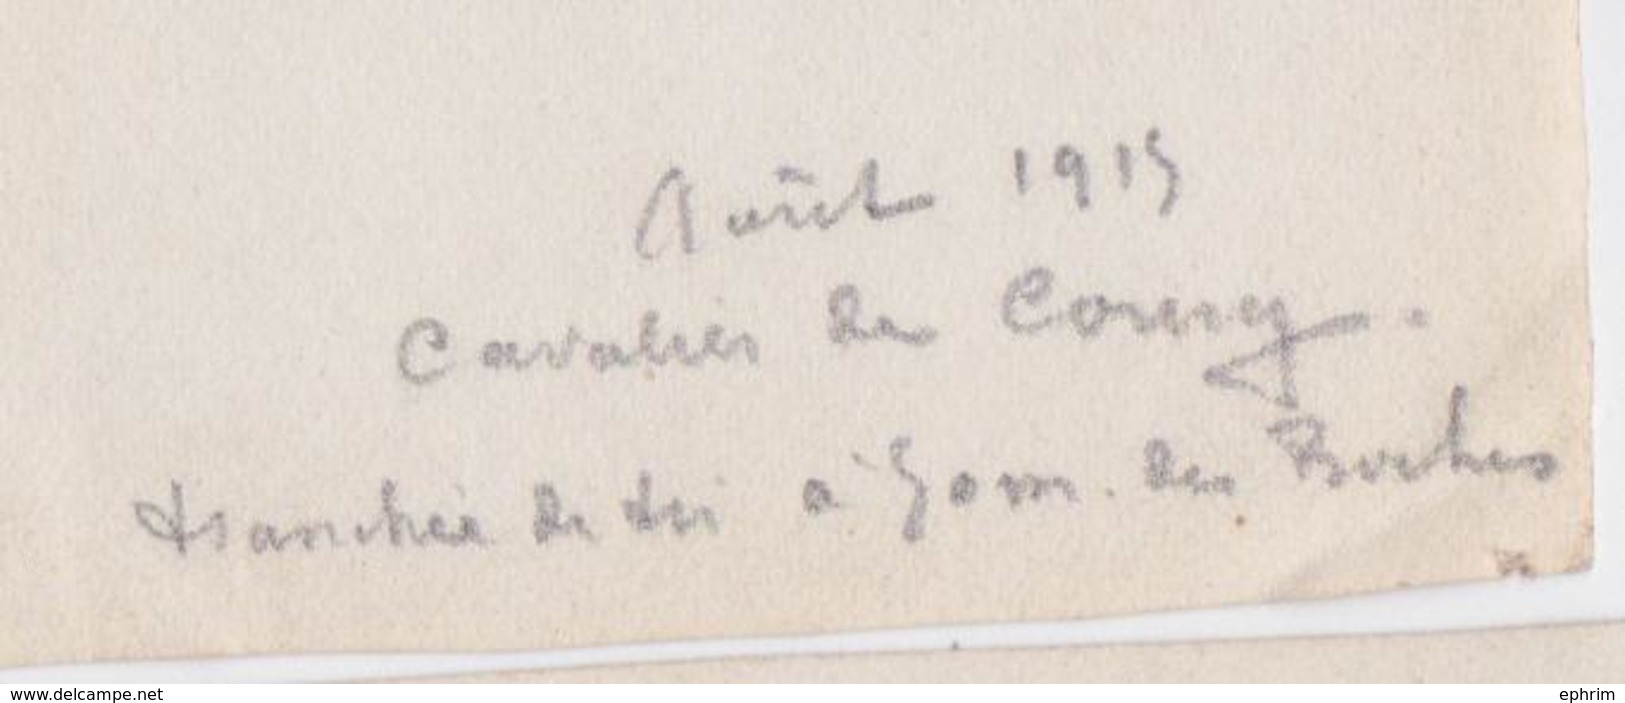 Août 1915
Cavalier de Courcy.
tranchée de tir à 50m. des Boches
www.delcampe.net
ephrim